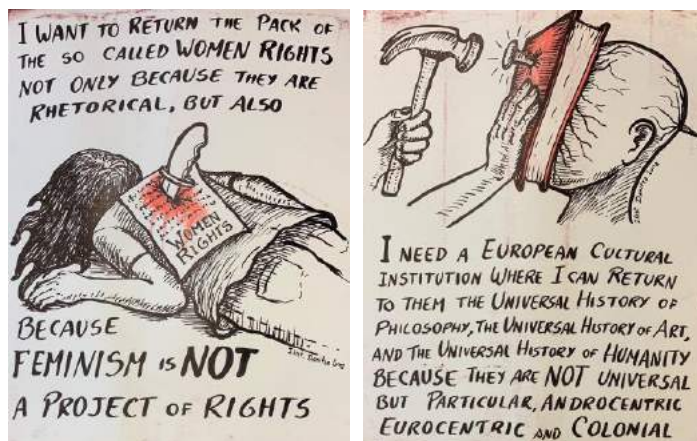 I WANT TO RETURN THE PACK OF
THE SO CALLED WOMEN RIGHTS
NOT ONLY BECAUSE THEY ARE
RHETORICAL, BUT ALSO
WOMEN
RIGHTS
BECAUSE
FEMINISM IS NOT
A PROJECT OF RIGHTS
I NEED A EUROPEAN CULTURAL
INSTITUTION WHERE I CAN RETURN
TO THEM THE UNIVERSAL HISTORY OF
PHILOSOPHY, THE UNIVERSAL HISTORY OF ART,
AND THE UNIVERSAL HISTORY OF HUMANITY
BECAUSE THEY ARE NOT UNIVERSAL
BUT PARTICULAR, ANDROCENTRIC
EUROCENTRIC AND COLONIAL